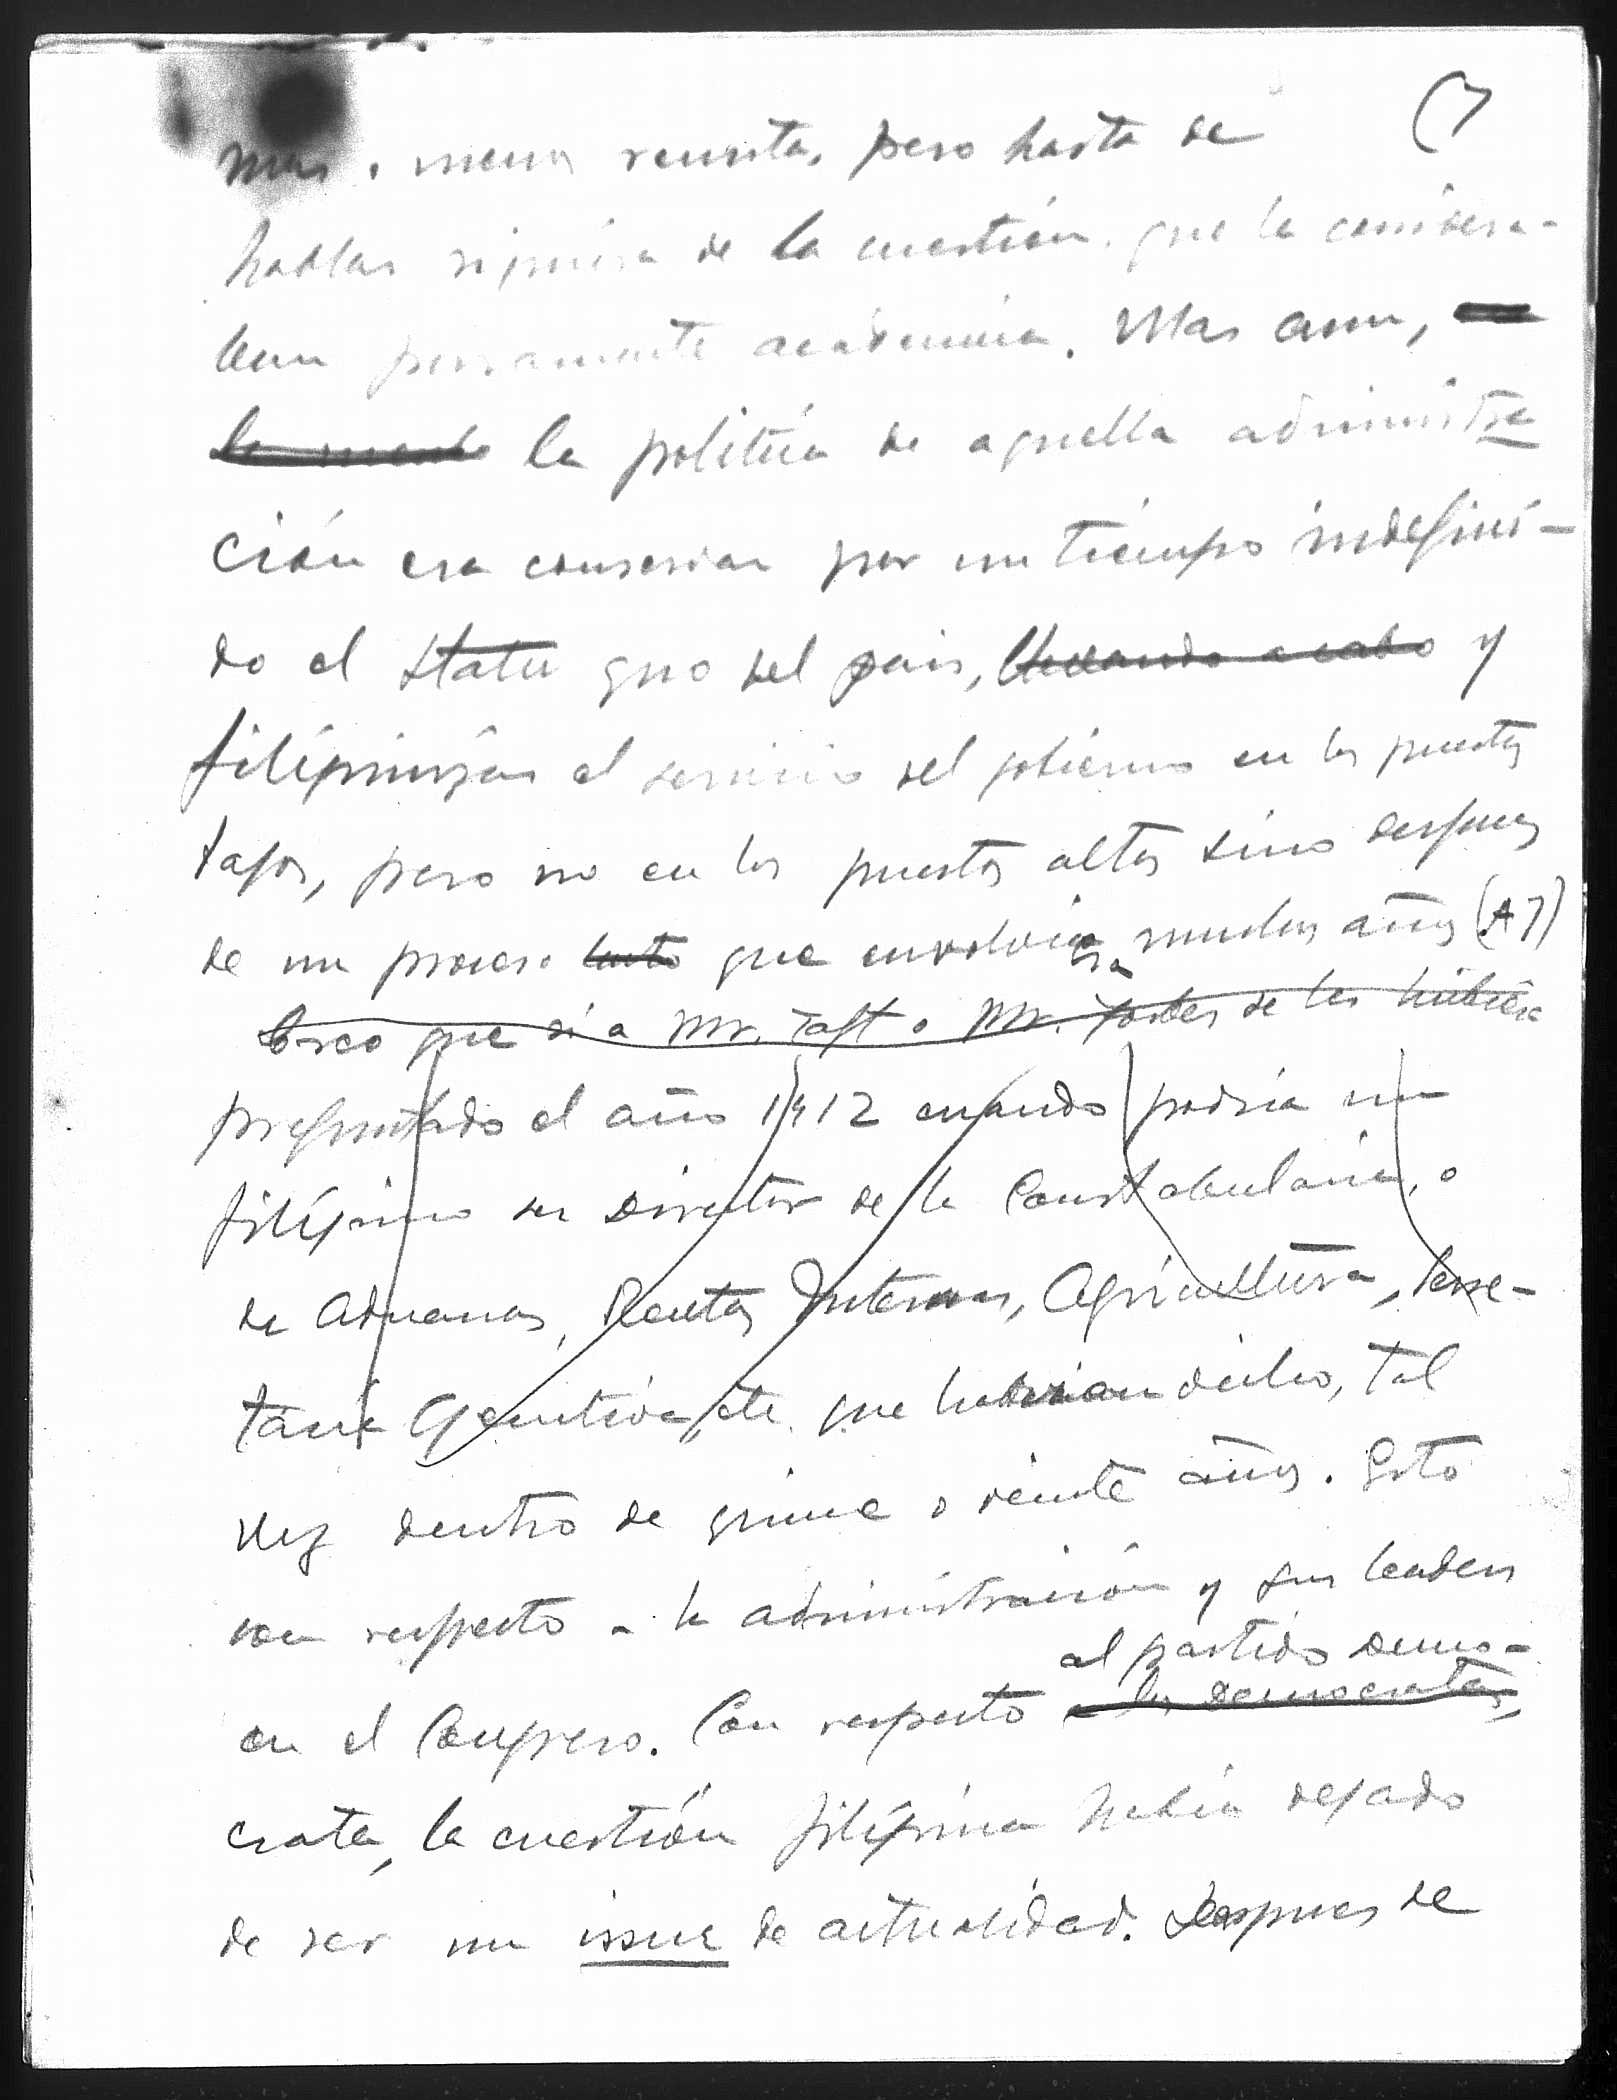 (7
mas o menos remota, pero hasta de
hablar siquiera de la cuestión, que la considera-
ban puramente académica. Mas aun,
la política de aquella administra
ción era conservar por un tiempo indefini-
do el statu quo del pais, llevando a cabo y
filipinizar el servicio del gobierno en los puestos
bajos, pero no en los puestos altos sino despues
de un proceso lento que envolviera muchos años (A7)
Creo que si a Mr. Taft o Mr. Forbes se les hubiera
preguntado el año 1912 cuando podría un
filipino ser Director de la Constabularia, o
de Aduanas, Rentas Internas, Agricultura, Secre-
taría Ejecutiva, etc. que habrian dicho, tal
vez dentro de quince o veinte años. Esto
con respecto a la administración y sus leaders
al partido demo-
en el Congreso. Con respecto a los democratas,
crata, la cuestión filipina había dejado
de ser un issue de actualidad. Despues de